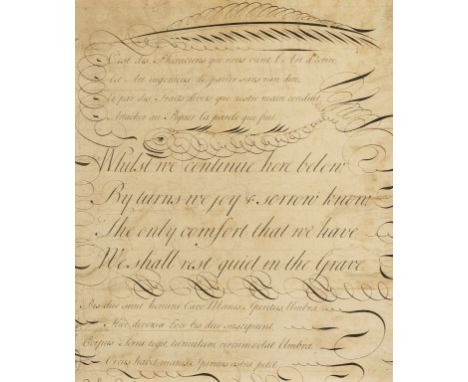 C'est des Phéniciens que nous vient l'Art d'écrire
Cet Art ingenieux de parler sans rien dire
Et par des Traits divers que notre main conduit
Attacher au Papier la parole qui fuit
Whilst we continue here below
By turns we joy & sorrow know
The only comfort that we have
We shall rest quiet in the Grave
Bis duo sunt homini Caro Manes, Spiritus Umbra
Hæc diversa loca bis duo suscipiunt
Corpus Terra teget, tumulum circumvolat Umbra
Orcus habet manes Spiritus astra petit